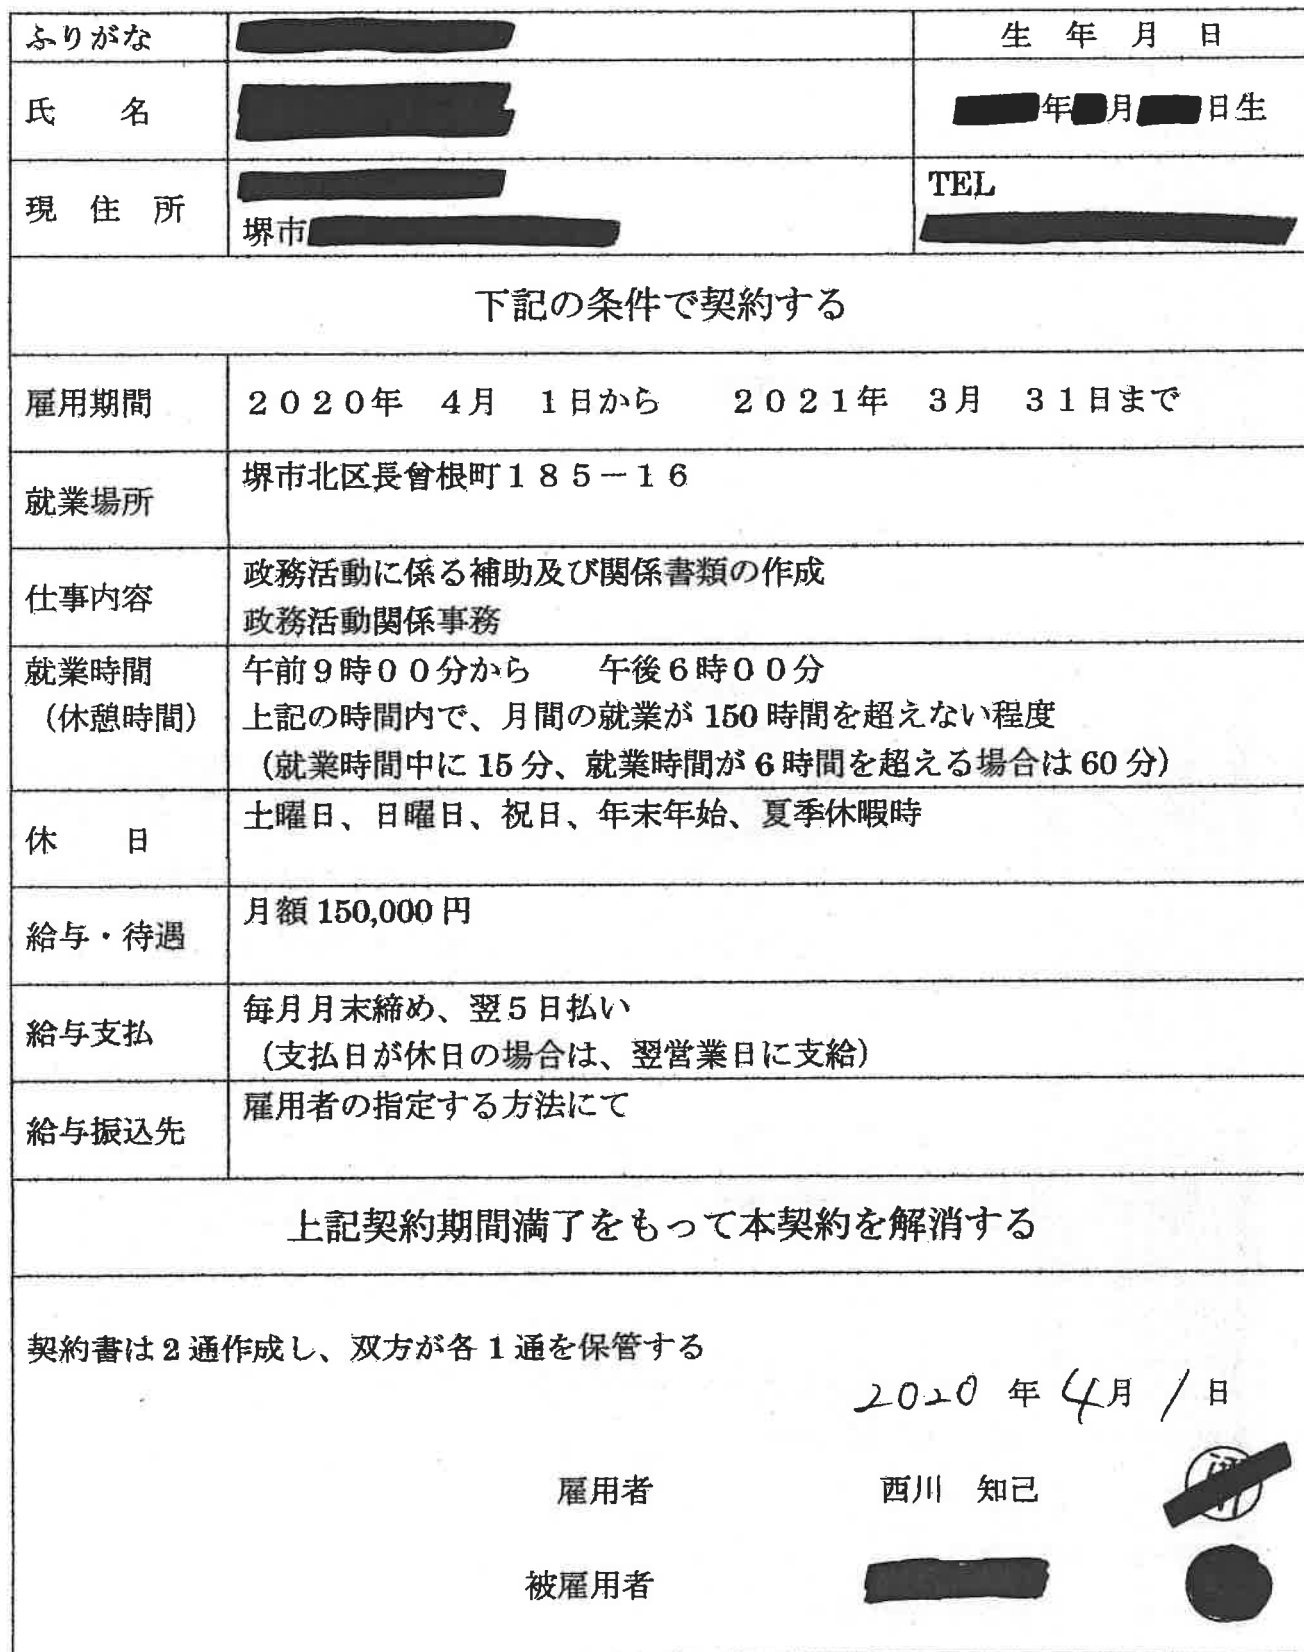 ふりがな
生 年 月 日
氏 名
年 月 日生
現 住 所
堺市
TEL
下記の条件で契約する
雇用期間
2020年 4月 1日から 2021年 3月 31日まで
就業場所
堺市北区長曾根町185-16
仕事内容
政務活動に係る補助及び関係書類の作成
政務活動関係事務
就業時間
(休憩時間)
午前9時00分から 午後6時00分
上記の時間内で、月間の就業が 150 時間を超えない程度
(就業時間中に 15 分、就業時間が 6 時間を超える場合は 60 分)
休 日
土曜日、日曜日、祝日、年末年始、夏季休暇時
給与・待遇
月額 150,000 円
給与支払
毎月月末締め、翌5日払い
(支払日が休日の場合は、翌営業日に支給)
給与振込先
雇用者の指定する方法にて
上記契約期間満了をもって本契約を解消する
契約書は 2 通作成し、双方が各 1 通を保管する
2020 年 4月 1日
雇用者 西川 知己
被雇用者